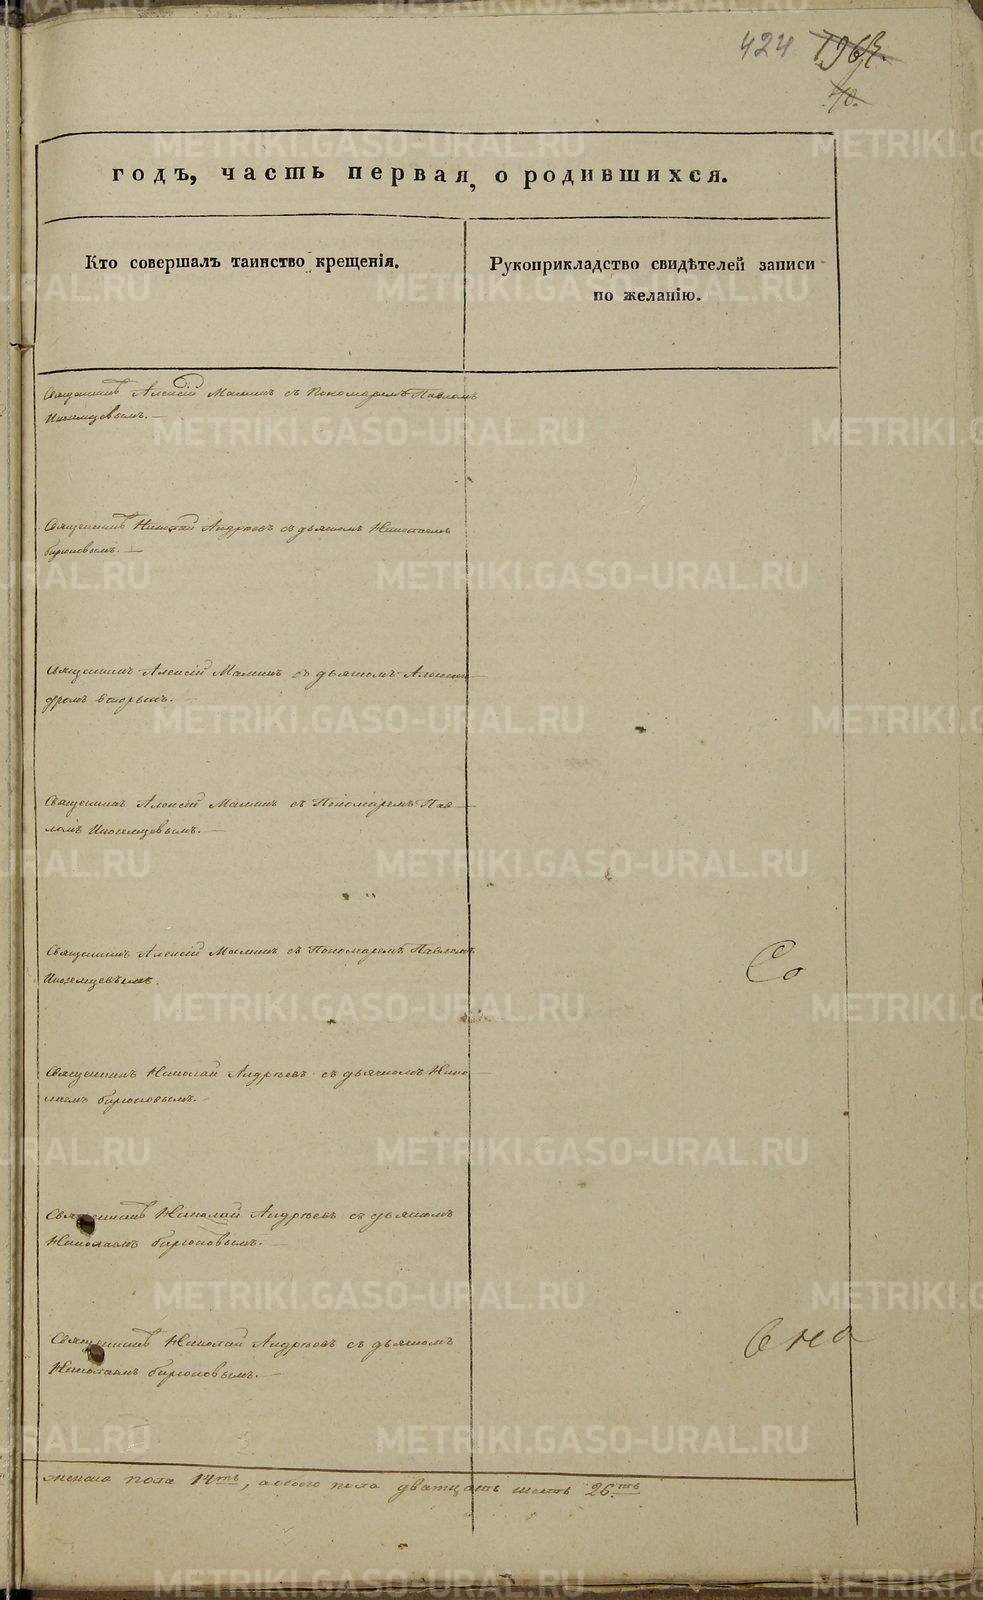 424 196
40.
годъ, часть первая, о родившихся.
Кто совершалъ таинство крещенія.
Рукоприкладство свидѣтелей записи
по желанію.
Священникъ Алексій Маминъ съ Пономаремъ Павломъ
Иноземцевымъ.—
Священникъ Николай Андреевъ съ дьячкомъ Николаемъ
Бирюковымъ.—
Священникъ Алексій Маминъ съ дьячкомъ Алексан
дромъ
Священникъ Алексій Маминъ съ Пономаремъ Пав
ломъ Иноземцевымъ.—
Священникъ Алексій Маминъ съ Пономаремъ Павломъ
Иноземцевымъ.
Со
Священникъ Николай Андреевъ съ дьячкомъ Нико
лаемъ Бирюковымъ.—
Священникъ Николай Андреевъ съ дьячкомъ
Николаемъ Бирюковымъ.—
Священникъ Николай Андреевъ съ дьячкомъ
Николаемъ Бирюковымъ.—
женска пола 14ть, обоего пола дватцать шесть 26ть
METRIKI.GASO-URAL.RU